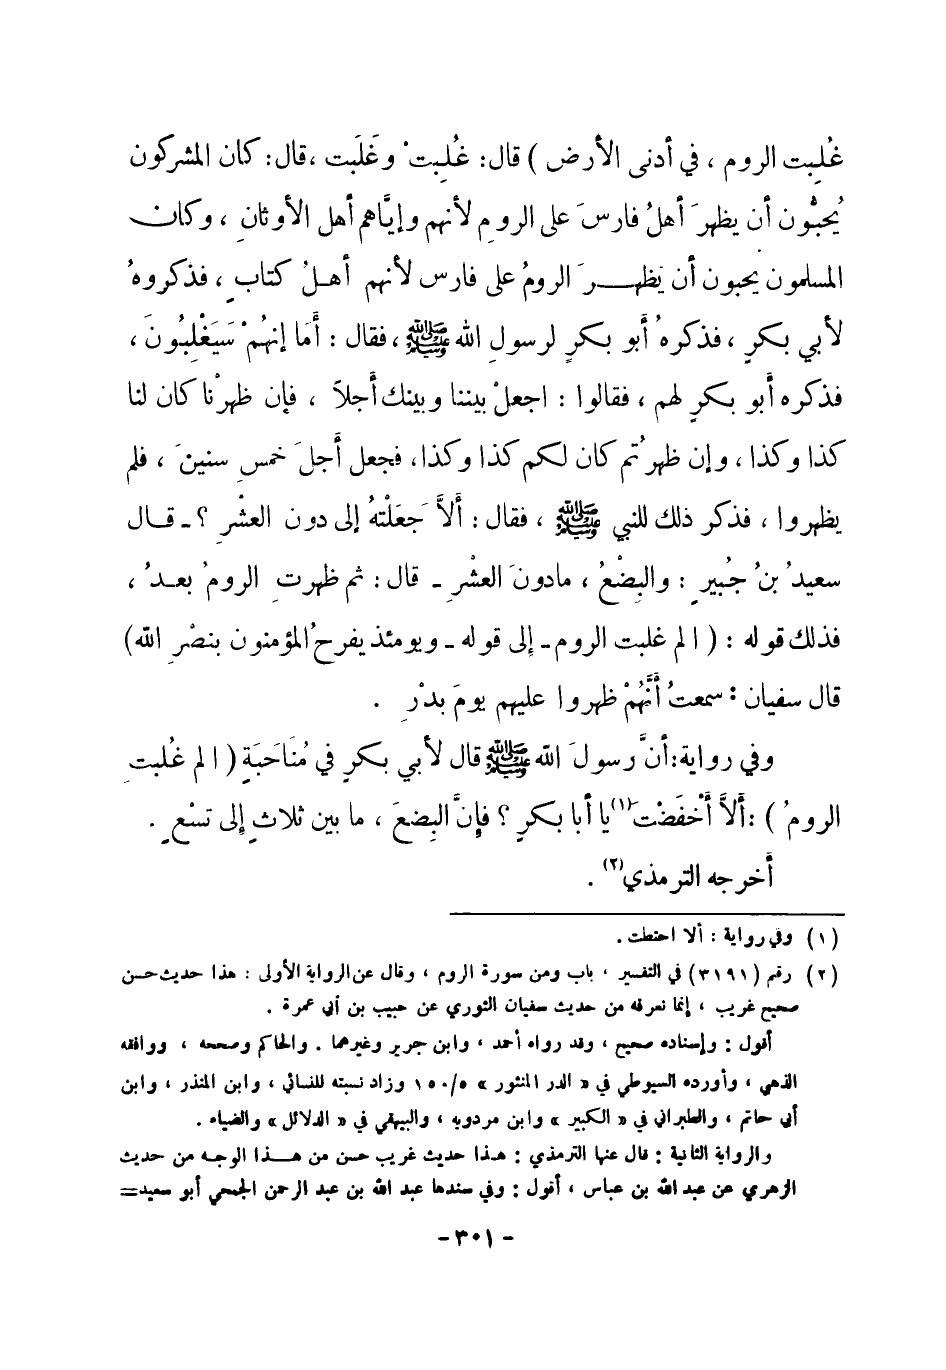 غُلِبت الروم ، في أدنى الأرض ) قال: غُلِبتْ وغَلَبت ،قال: كان المشركون
يُحبُّون أن يظهرَ أهلُ فارسَ على الرومِ لأنهم وإيَّاهم أهل الأوثانِ ، وكان
المسلمون يحبون أن يَظهـــرَ الرومُ على فارس لأنهم أهـلُ كتابٍ ، فذكروهُ
لأبي بكرٍ ، فذكرهُ أبو بكرٍ لرسولِ الله ﷺ ، فقال : أَمَا إنهُمْ سَيَغْلِبُونَ ،
فذكره أبو بكرٍ لهم ، فقالوا : اجعلْ بيننا وبينك أجلاً ، فإن ظهرْنا كان لنا
كذا وكذا ، وإن ظهرْتُم كان لكم كذا وكذا، فجعل أجلَ خمسِ سنينَ ، فلم
يظهروا ، فذكر ذلك للنبي ﷺ ، فقال : ألاَّ جَعَلْتهُ إلى دون العشْرِ ؟ ـ قـال
سعيدُ بنُ جُبيرٍ : والبِضْعُ ، مادونَ العشْرِ ـ قال : ثم ظهرتِ الرومُ بعـدُ ،
فذلك قوله : ( الم غلبت الروم ـ إلى قوله ـ ويومئذ يفرحُ المؤمنون بنصْرِ الله)
قال سفيان : سمعتُ أنَّهُمْ ظهروا عليهم يومَ بدْرٍ .
وفي رواية: أنَّ رسولَ الله ﷺ قال لأبي بكرٍ في مُنَاحَبَةِ ( الم غُلبتِ
الرومُ ) : ألاَّ أَخْفَضْتَ(١) يا أبا بكرٍ ؟ فإنَّ البِضعَ ، ما بين ثلاثٍ إلى تسْعٍ .
أخرجه الترمذي(٢) .
(١) وفي رواية : ألا احتطت .
(٢) رقم (٣١٩١) في التفسير ، باب ومن سورة الروم ، وقال عن الرواية الأولى : هذا حديث حسن
صحيح غريب ، إنما نعرفه من حديث سفيان الثوري عن حبيب بن أبي عمرة .
أقول : وإسناده صحيح ، وقد رواه أحمد ، وابن جرير وغيرهما . والحاكم وصححه ، ووافقه
الذهبي ، وأورده السيوطي في « الدر المنثور » ١٥٠/٥ وزاد نسبته للنسائي ، وابن المنذر ، وابن
أبي حاتم ، والطبراني في « الكبير » وابن مردويه ، والبيهقي في « الدلائل » والضياء .
والرواية الثانية : قال عنها الترمذي : هـذا حديث غريب حسن من هـــذا الوجـه من حديث
الزهري عن عبد الله بن عباس ، أقول : وفي سندها عبد الله بن عبد الرحمن الجمحي أبو سعيد=
- ٣٠١ -